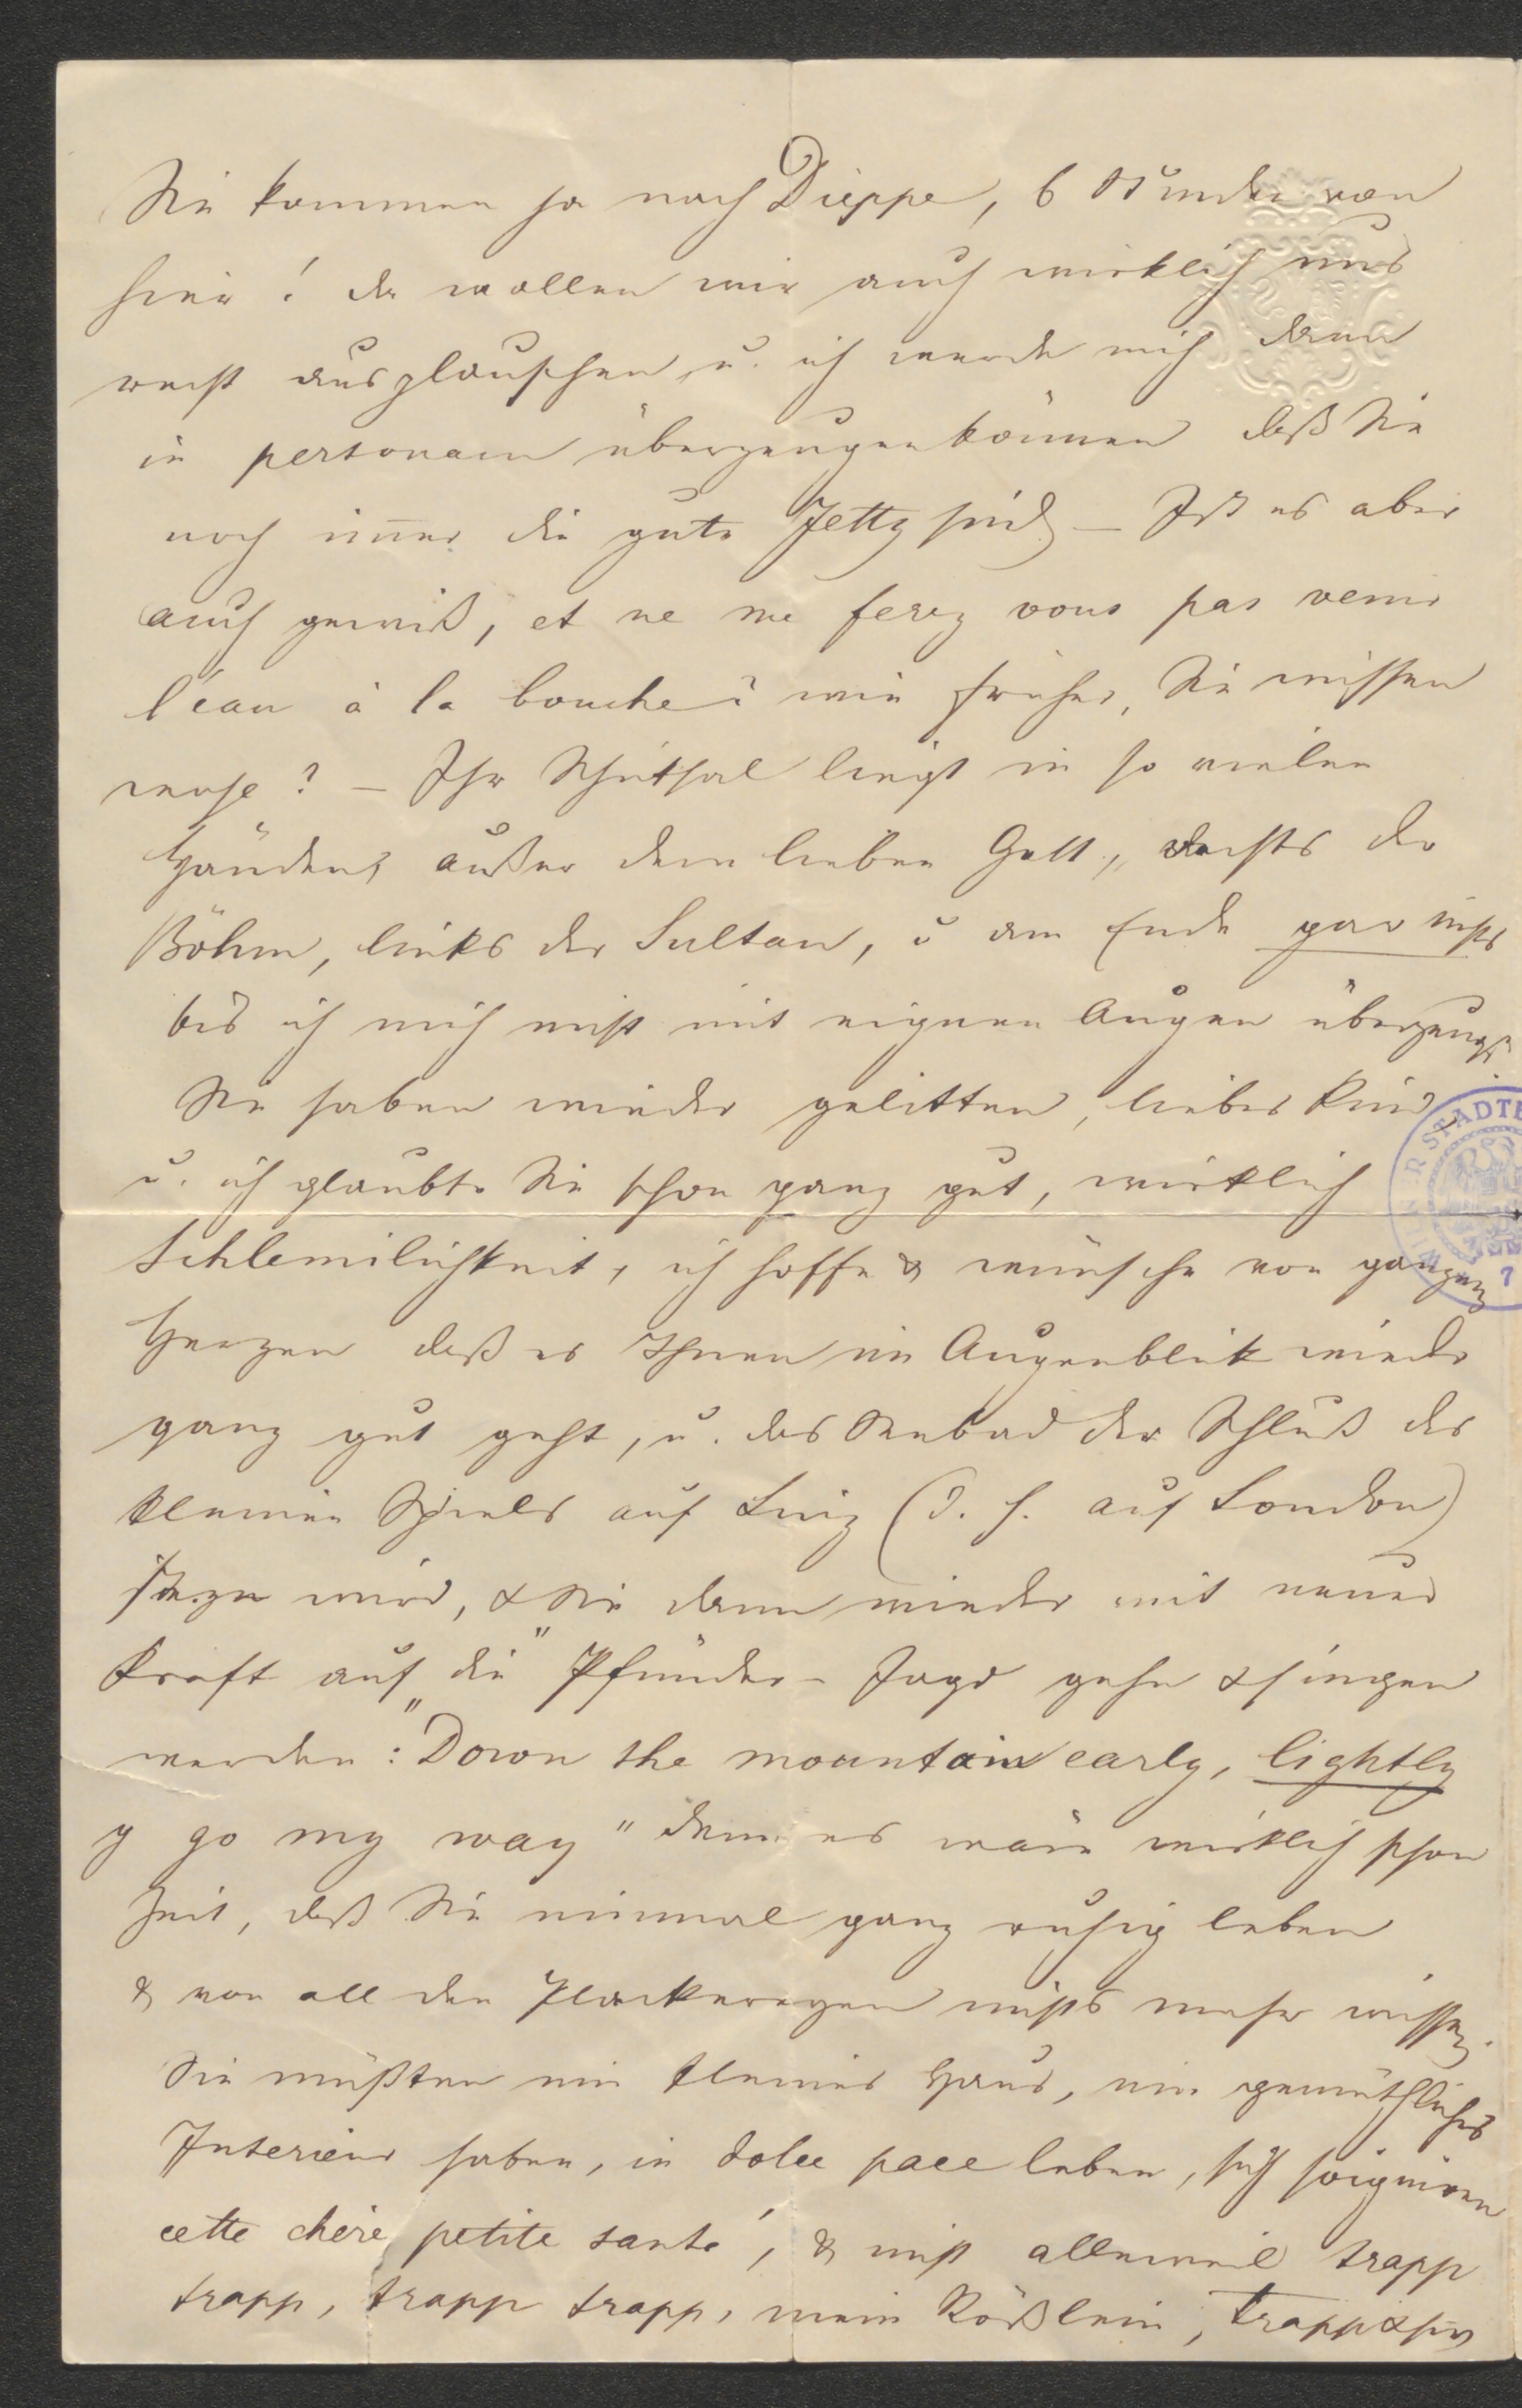 Sie kommen ja nach Dieppe, 6 Stunden von
hier! da wollen wir auch wirklich uns
recht ausplauschen, u. ich werde mich dann
in personam überzeugen können daß Sie
noch im̄er die gute Jetty sind – Ist es aber
auch gewiß, et ne me ferez vous pas venir
l'eau à la bouche? wie früher, Sie wissen
? – Ihr Schicksal liegt in so vielen
Händen, außer dem lieben Gott, rechts der
Böhm, links der Sultan, u am Ende gar nichts
bis ich mich nicht mit eignen Augen überzeugt.
Sie haben wieder gelitten, liebes Kind,
u. ich glaubte Sie schon ganz gut, wirklich
Schlemilichkeit, ich hoffe & wünsche von ganzen
Herzen daß es Ihnen im Augenblick wieder
ganz gut geht, u. das Seebad der Schluß des
kleinen Spiels auf Linz (d. h. auf London)
sein wird, & Sie dann wieder mit neuer
Kraft auf die Pfünder-Jagd gehn & singen
werden: "Down the mountain early, lightly
y go my way" denn es wäre wirklich schon
Zeit, daß Sie einmal ganz ruhig leben
& von all den Plackereyen nichts mehr wissen.
Sie müßten ein kleines Haus, ein gemüthliches
Interieur haben, in dolce pace leben, sich soigniren
cette chère petite santé, & nicht alleweil trapp
trapp, trapp trapp, mein Rößlein, trapp & hin